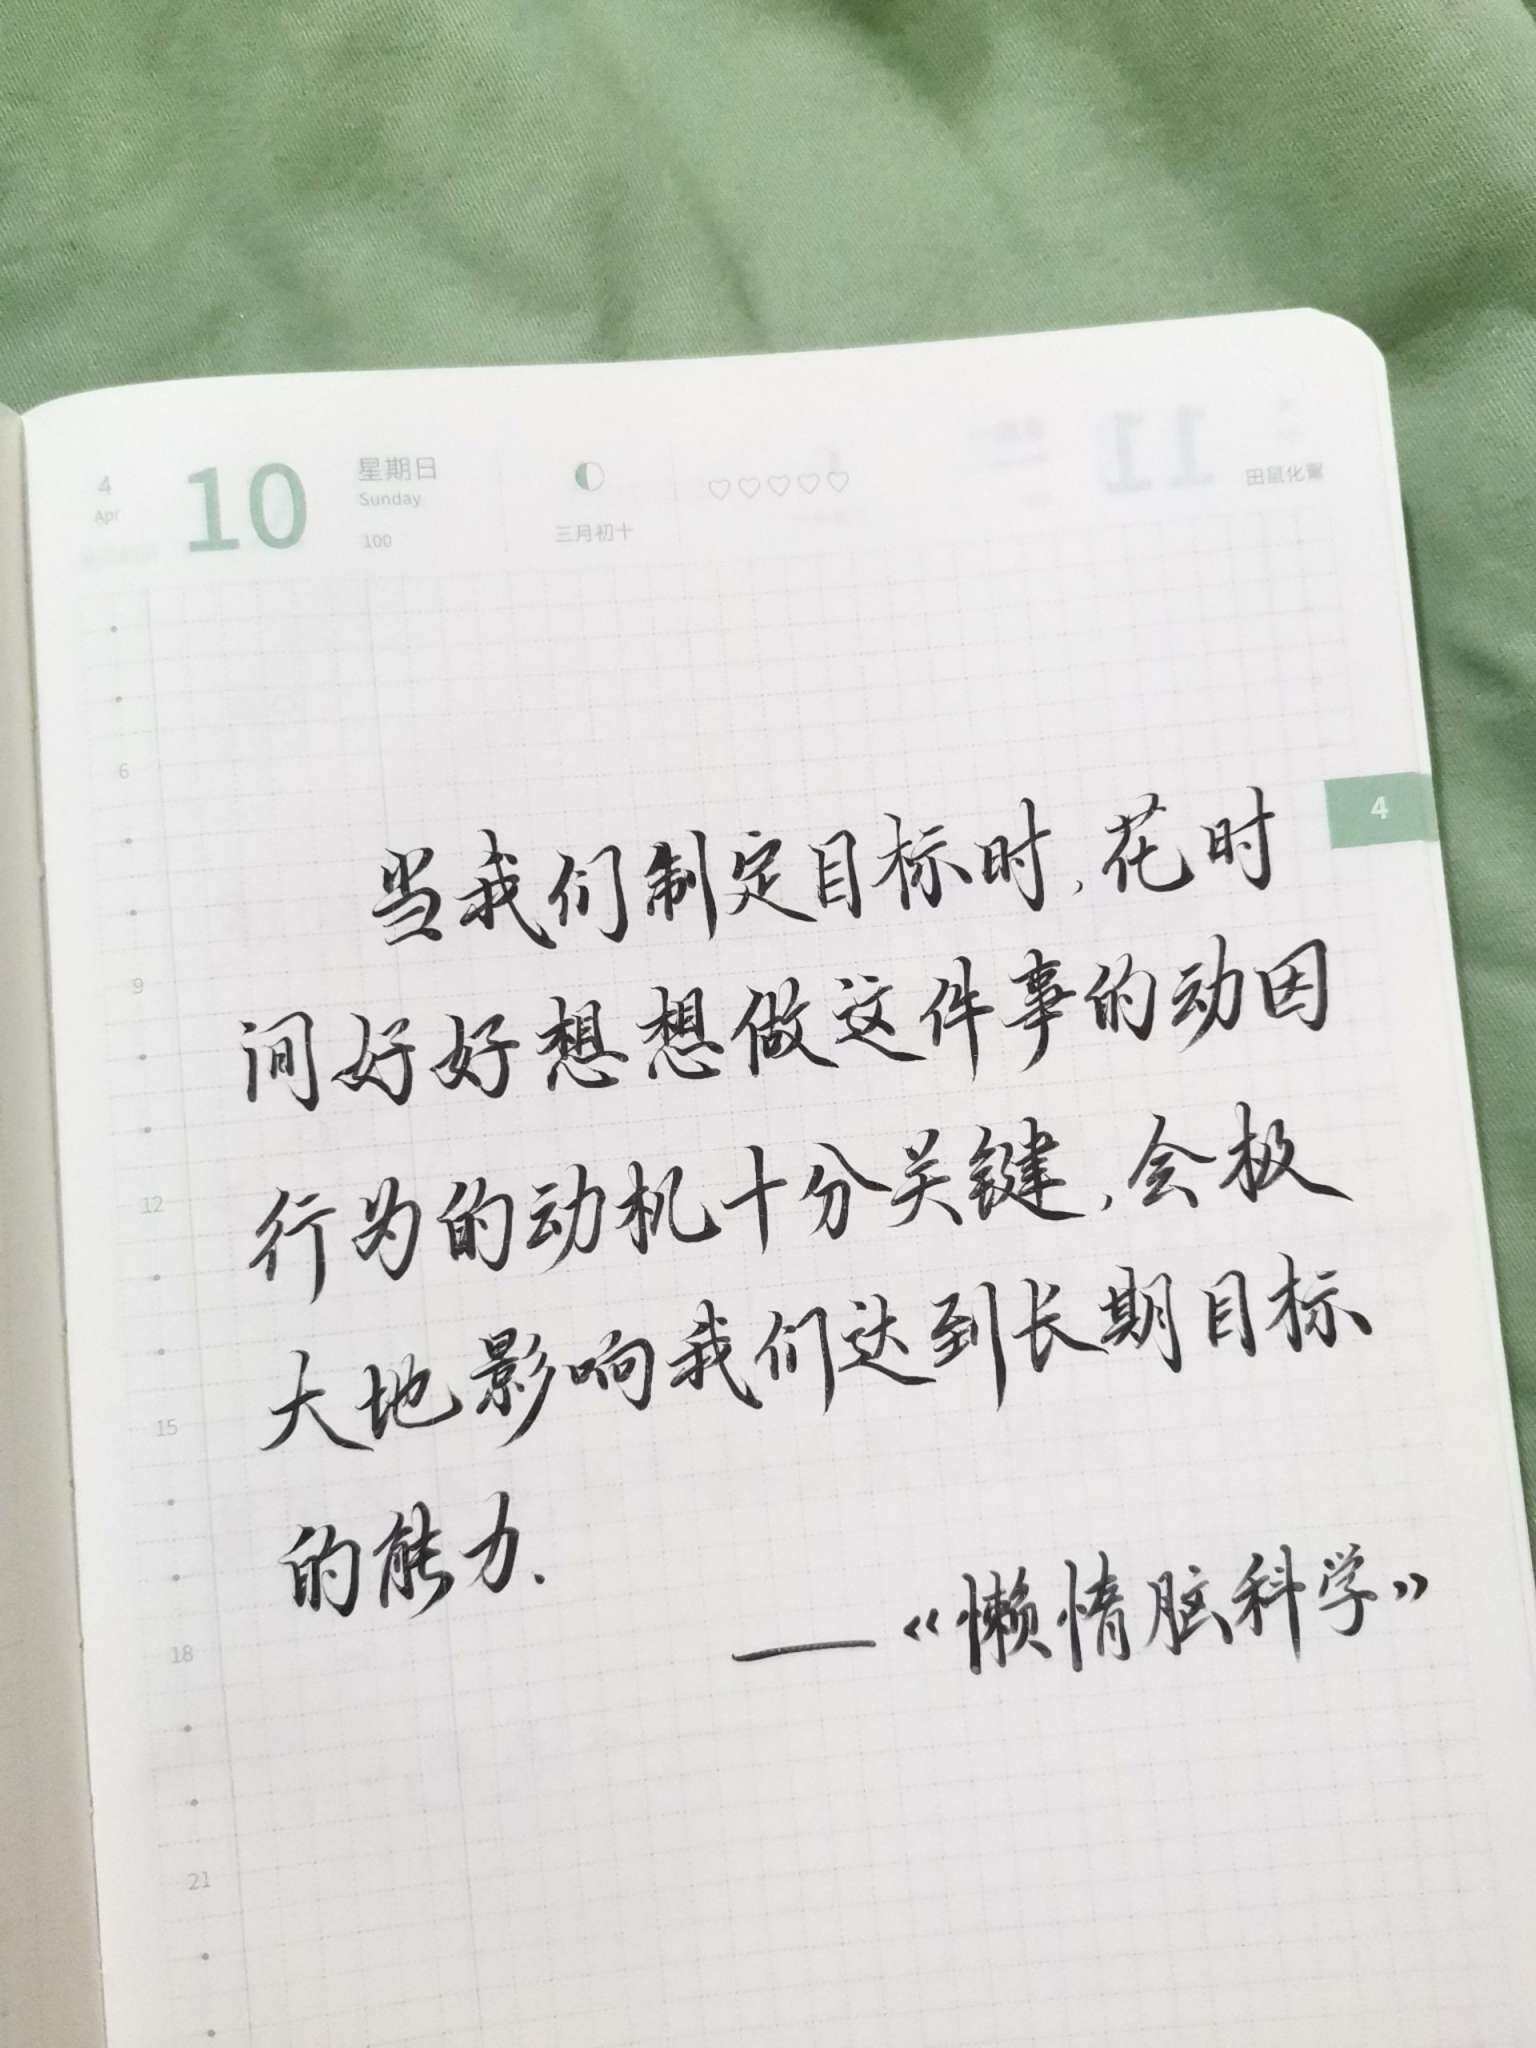 4
Apr
10
星期日
Sunday
100
三月初十
田鼠化鴽
6
4
当我们制定目标时,花时
9
间好好想想做这件事的动因
12
行为的动机十分关键,会极
大地影响我们达到长期目标
15
的能力.
18
——《懒惰脑科学》
21